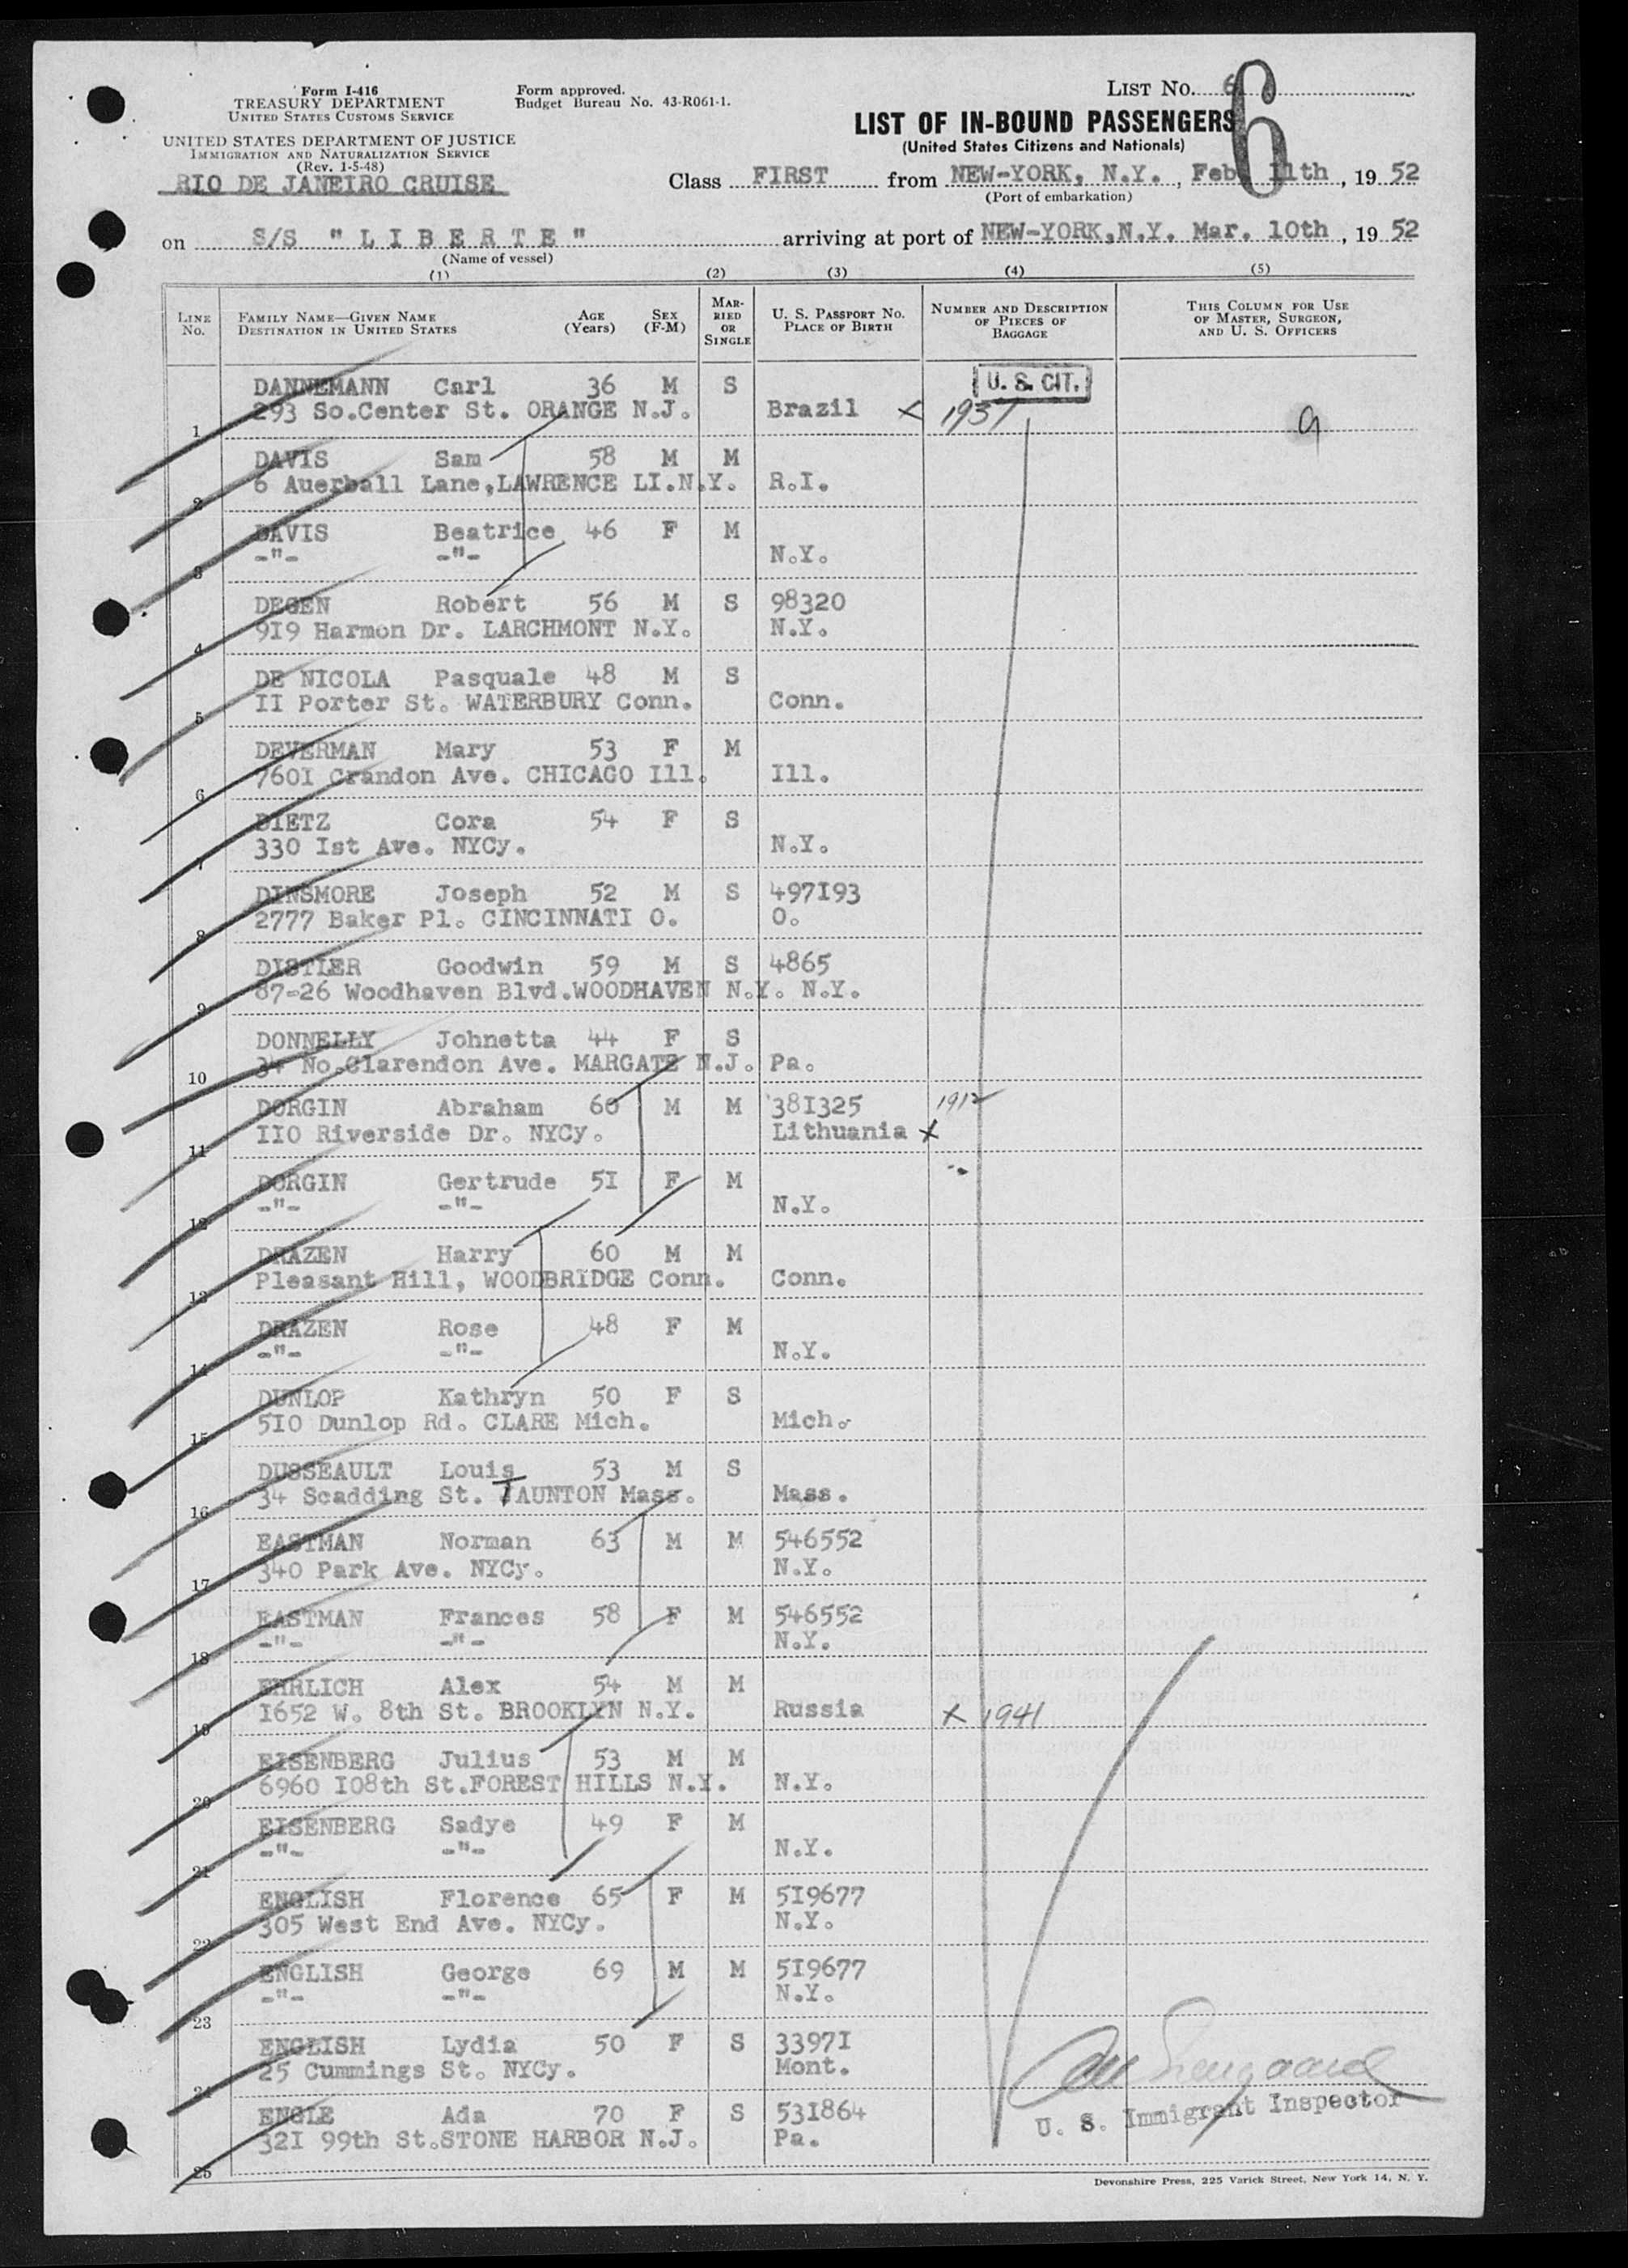 Form I-416
TREASURY DEPARTMENT
UNITED STATES CUSTOMS SERVICE
UNITED STATES DEPARTMENT OF JUSTICE
IMMIGRATION AND NATURALIZATION SERVICE
(Rev. 1-5-48)
RIO DE JANEIRO CRUISE
Form approved.
Budget Bureau No. 43-R061-1.
LIST NO. 6
6
LIST OF IN-BOUND PASSENGERS
(United States Citizens and Nationals)
Class FIRST from NEW-YORK, N.Y., Feb. 11th, 19 52
(Port of embarkation)
on S/S "LIBERTE" arriving at port of NEW-YORK,N.Y. Mar. 10th, 19 52
(Name of vessel)
(1) (2) (3) (4) (5)
LINE NO.
FAMILY NAME—GIVEN NAME
DESTINATION IN UNITED STATES
AGE (Years)
SEX (F-M)
MARRIED OR SINGLE
U. S. PASSPORT NO.
PLACE OF BIRTH
NUMBER AND DESCRIPTION OF PIECES OF BAGGAGE
THIS COLUMN FOR USE OF MASTER, SURGEON, AND U. S. OFFICERS
DANNEMANN Carl 36 M S U. S. CIT.
293 So.Center St. ORANGE N.J. Brazil x 1937 9
1
DAVIS Sam 58 M M
6 Auerball Lane,LAWRENCE LI.N.Y. R.I.
2
DAVIS Beatrice 46 F M
-"- -"- N.Y.
3
DEGEN Robert 56 M S 98320
919 Harmon Dr. LARCHMONT N.Y. N.Y.
4
DE NICOLA Pasquale 48 M S
II Porter St. WATERBURY Conn. Conn.
5
DEVERMAN Mary 53 F M
760I Crandon Ave. CHICAGO Ill. Ill.
6
DIETZ Cora 54 F S
330 Ist Ave. NYCy. N.Y.
7
DINSMORE Joseph 52 M S 497I93
2777 Baker Pl. CINCINNATI O. O.
8
DISTLER Goodwin 59 M S 4865
87-26 Woodhaven Blvd.WOODHAVEN N.Y. N.Y.
9
DONNELLY Johnetta 44 F S
34 No.Clarendon Ave. MARGATE N.J. Pa.
10
DORGIN Abraham 60 M M 38I325 1912
II0 Riverside Dr. NYCy. Lithuania x
11
DORGIN Gertrude 5I F M "
-"- -"- N.Y.
12
DRAZEN Harry 60 M M
Pleasant Hill, WOODBRIDGE Conn. Conn.
13
DRAZEN Rose 48 F M
-"- -"- N.Y.
14
DUNLOP Kathryn 50 F S
5I0 Dunlop Rd. CLARE Mich. Mich.
15
DUSSEAULT Louis 53 M S
34 Scadding St. TAUNTON Mass. Mass.
16
EASTMAN Norman 63 M M 546552
340 Park Ave. NYCy. N.Y.
17
EASTMAN Frances 58 F M 546552
-"- -"- N.Y.
18
EHRLICH Alex 54 M M
I652 W. 8th St. BROOKLYN N.Y. Russia x 1941
19
EISENBERG Julius 53 M M
6960 I08th St.FOREST HILLS N.Y. N.Y.
20
EISENBERG Sadye 49 F M
-"- -"- N.Y.
21
ENGLISH Florence 65 F M 5I9677
305 West End Ave. NYCy. N.Y.
22
ENGLISH George 69 M M 5I9677
-"- -"- N.Y.
23
ENGLISH Lydia 50 F S 3397I
25 Cummings St. NYCy. Mont.
24
ENGLE Ada 70 F S 53I864
32I 99th St.STONE HARBOR N.J. Pa.
25
U. S. Immigrant Inspector
Devonshire Press, 225 Varick Street, New York 14, N. Y.